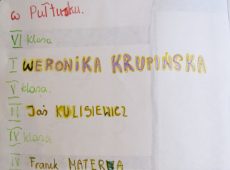 w Pułtusku.
VI klasa
I WERONIKA KRUPIŃSKA
V klasa.
II Jaś KULISIEWICZ
IV klasa
IV Franek MATERNA